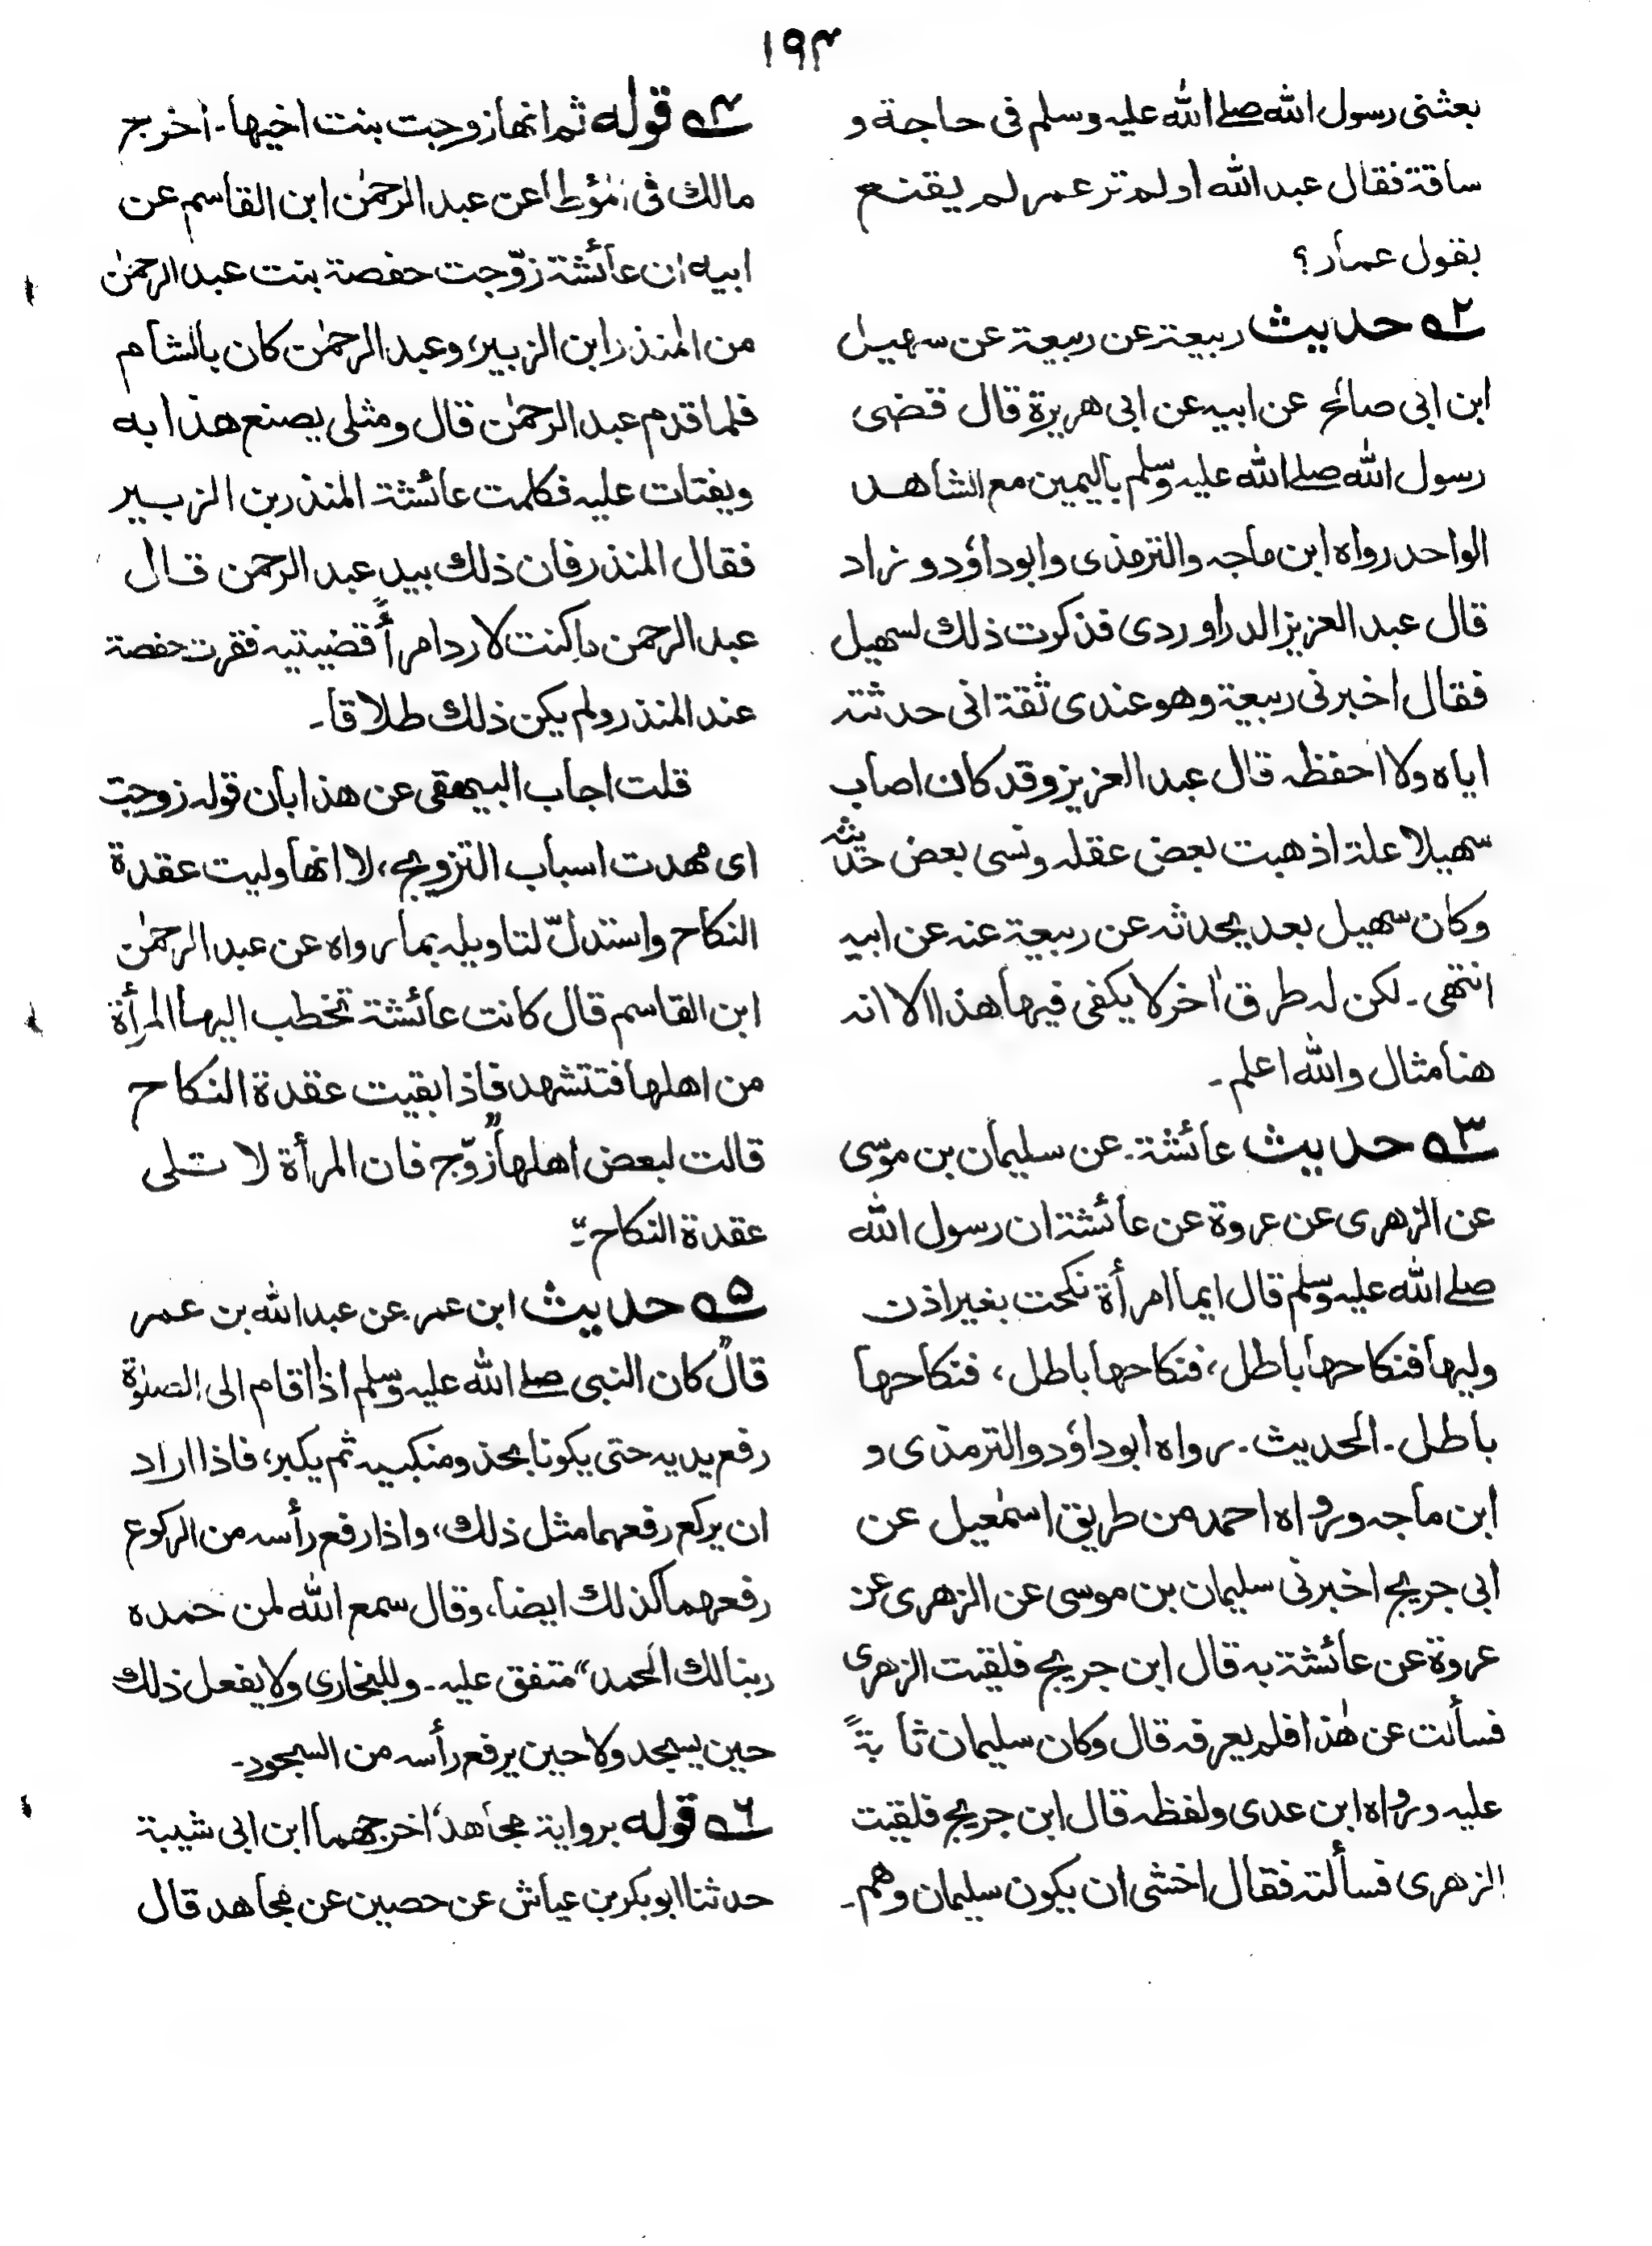 ۱۹۴
بعثنی رسول الله صلے الله علیه وسلم فی حاجة و
ساقة فقال عبد الله اولم تر عمر لم یقنع
بقول عمار؟
۲ه حدیث ربیعة عن ربیعة عن سهیل
ابن ابی صالح عن ابیه عن ابی هریرة قال قضی
رسول الله صلے الله علیه وسلم بالیمین مع الشاهد
الواحد رواه ابن ماجه والترمذی وابوداؤد و زاد
قال عبد العزیز الدراوردی فذکرت ذلك لسهیل
فقال اخبرنی ربیعة وهو عندی ثقة انی حدثته
ایاه ولا احفظه قال عبد العزیز وقد کان اصاب
سهیلا علة اذهبت بعض عقله ونسی بعض حدیثه
وکان سهیل بعد یحدثه عن ربیعة عنه عن ابیه
انتهی۔ لکن له طرق اٰخر لا یکفی فیها هذا الا انه
هنا مثال والله اعلم۔
۳ه حدیث عائشة۔ عن سلیمان بن موسی
عن الزهری عن عروة عن عائشة ان رسول الله
صلے الله علیه وسلم قال ایما امرأة نکحت بغیر اذن
ولیها فنکاحها باطل، فنکاحها باطل، فنکاحها
باطل۔ الحدیث۔ رواه ابوداؤد والترمذی و
ابن ماجه ورواه احمد من طریق اسمٰعیل عن
ابی جریج اخبرنی سلیمان بن موسی عن الزهری عن
عروة عن عائشة به قال ابن جریج فلقیت الزهری
فسألت عن هٰذا فلم یعرفه قال وکان سلیمان ثا بةً
علیه ورواه ابن عدی ولفظه قال ابن جریج فلقیت
الزهری فسألته فقال اخشی ان یکون سلیمان وهم۔
۴ه قوله ثم انها زوجت بنت اخیها۔ اخرج
مالك فی المؤطا عن عبد الرحمٰن ابن القاسم عن
ابیه ان عائشة زوّجت حفصة بنت عبد الرحمٰن
من المنذر ابن الزبیر، وعبد الرحمٰن کان بالشام
فلما قدم عبد الرحمٰن قال ومثلی یصنع هذا به
ویفتات علیه فکلمت عائشة المنذر بن الزبیر
فقال المنذر فان ذلك بید عبد الرحمن قال
عبد الرحمن ماکنت لارد امراً قضیتیه فقرت حفصة
عند المنذر ولم یکن ذلك طلاقا۔
قلت اجاب البیهقی عن هذا بان قوله زوجت
ای مهدت اسباب التزویج، لا انها ولیت عقدة
النکاح واستدلّ لتاویله بما رواه عن عبد الرحمٰن
ابن القاسم قال کانت عائشة تخطب الیها المرأة
من اهلها فتتشهد فاذا بقیت عقدة النکاح
قالت لبعض اهلها "زوّج فان المرأة لا تلی
عقدة النکاح"۔
۵ه حدیث ابن عمر۔ عن عبد الله بن عمر
قال "کان النبی صلے الله علیه وسلم اذا قام الی الصلوٰة
رفع یدیه حتی یکونا بحذو منکبیه ثم یکبر، فاذا اراد
ان یرکع رفعهما مثل ذلك، واذا رفع رأسه من الرکوع
رفعهما کذلك ایضا، وقال سمع الله لمن حمده
ربنا لك الحمد" متفق علیه۔ وللبخاری ولا یفعل ذلك
حین یسجد ولا حین یرفع رأسه من السجود۔
۶ه قوله بروایة مجاهد، اخرجهما ابن ابی شیبة
حدثنا ابوبکر بن عیاش عن حصین عن مجاهد قال